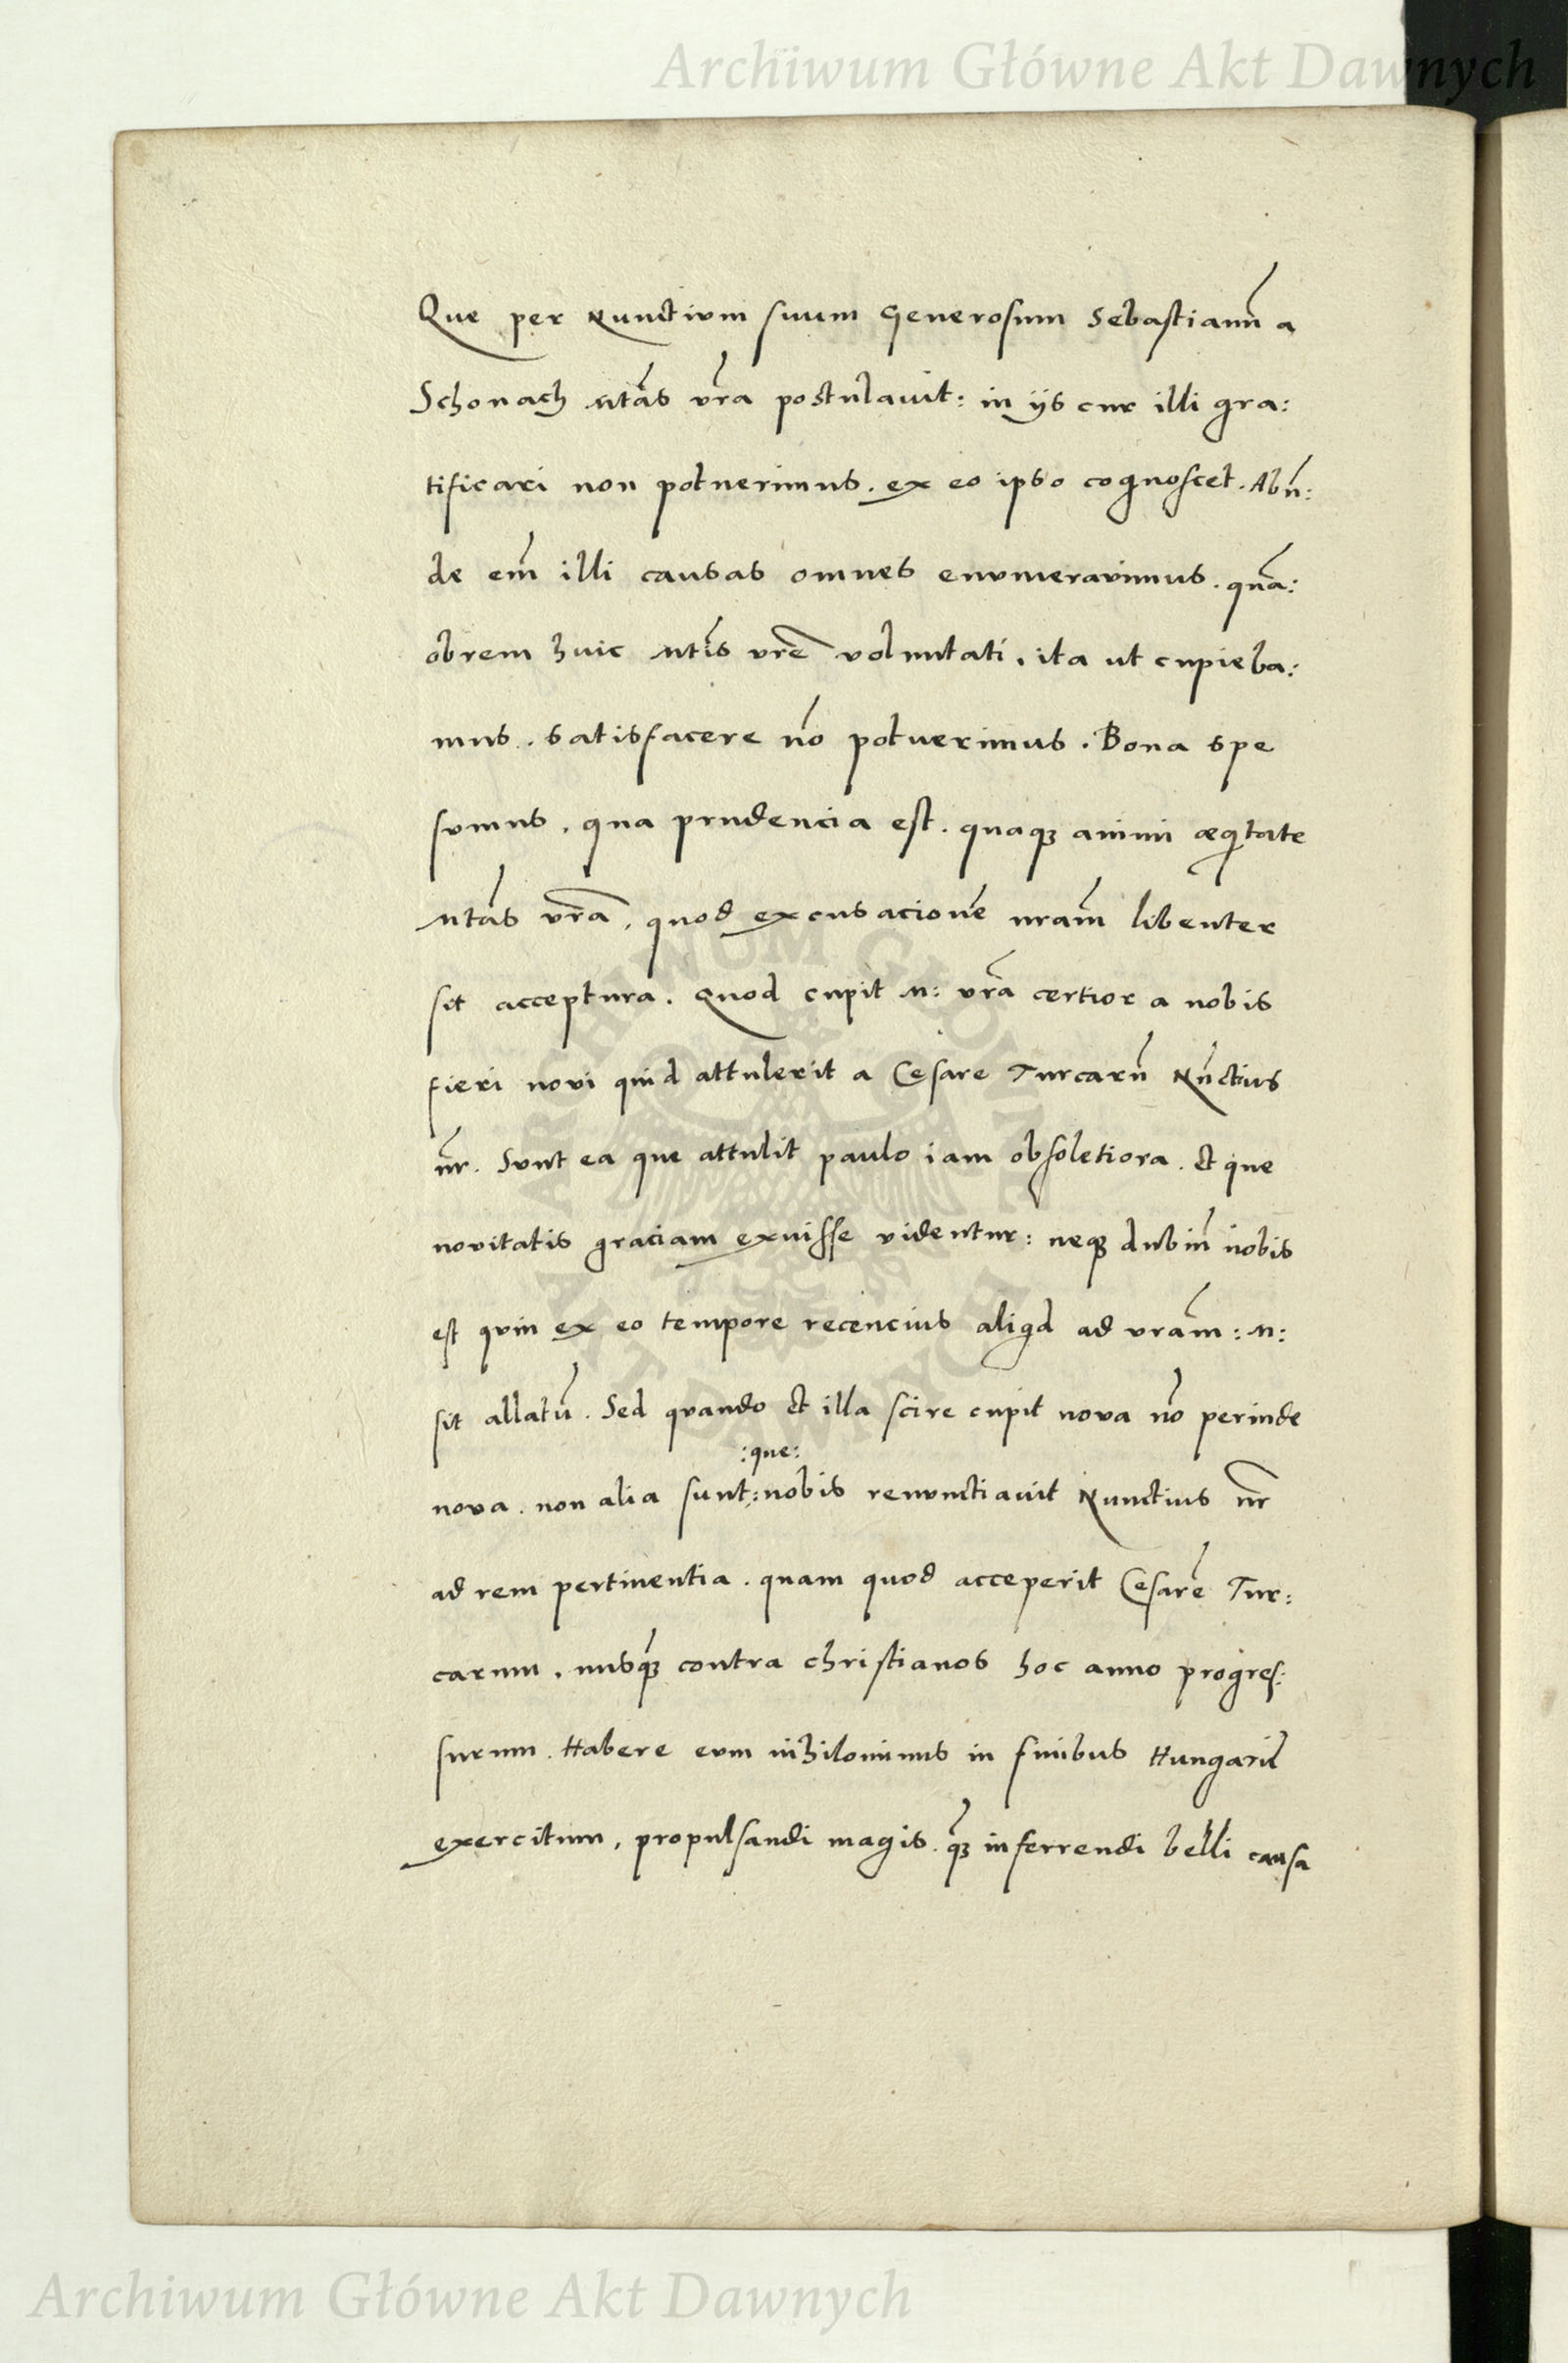 Archiwum Główne Akt Dawnych
Que per Nunctium suum Generosum Sebastianū a
Schonach Mtās vr̄a postulavit: in ijs cur illi gra:
tificari non potuerimus. ex eo ipso cognoscet. Abū:
de em̄ illi causas omnes enumeravimus. quā:
obrem huic Mtis vrē voluntati, ita ut cupieba:
mus. satisfacere nō potuerimus. Bona spe
sumus, qua prudencia est. quaqȝ animi æqitate
Mtās vrā, quod excusacionē nram̄ libenter
sit acceptura. Quod cupit M: vrā certior a nobis
fieri novi quid attulerit a Cesare Turcarū Nūctius
nr̄. Sunt ea que attulit paulo iam obsoletiora. et que
novitatis graciam exuisse videntur: neqȝ dubiū nobis
est quin ex eo tempore recencius aliqd ad vram̄: M:
sit allatū. Sed quando et illa scire cupit nova nō perinde
:que:
nova. non alia sunt: nobis renunctiavit Nunctius nr̄
ad rem pertinentia. quam quod acceperit Cesarē Tur:
carum, nusqȝ contra christianos hoc anno progres:
surum. Habere eum nihilominus in finibus Hungariē
exercitum, propulsandi magis. qȝ inferrendi belli causa
ARCHIWUM GŁÓWNE
AKT DAWNYCH
Archiwum Główne Akt Dawnych